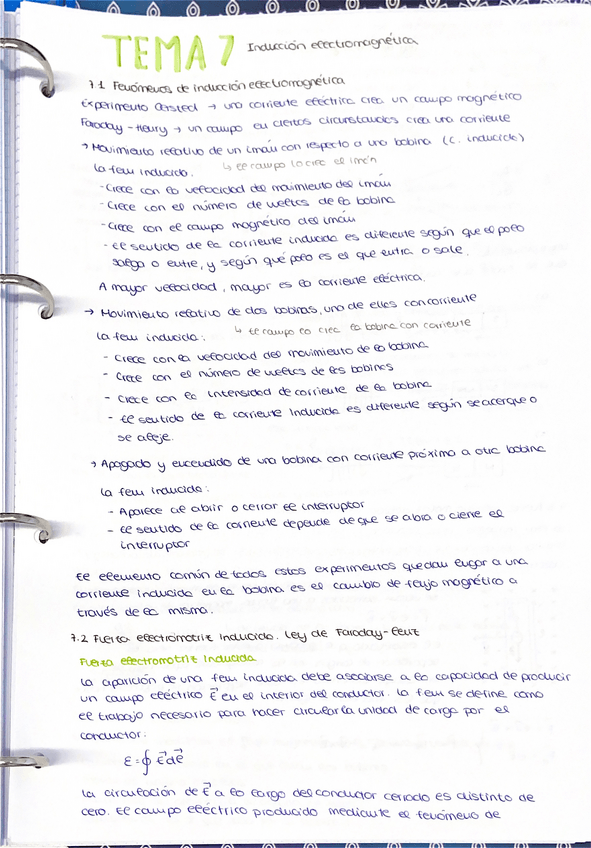 TEMA 7 Inducción electromagnética
7.1 Fenómenos de inducción electromagnética
Experimento Oersted → una corriente eléctrica crea un campo magnético
Faraday-Henry → un campo en ciertas circunstancias crea una corriente
→ Movimiento relativo de un imán con respecto a una bobina (c. inducida)
la fem inducida: ↳ el campo lo crea el imán
- Crece con la velocidad del movimiento del imán
- Crece con el número de vueltas de la bobina
- Crece con el campo magnético del imán
- El sentido de la corriente inducida es diferente según que el polo
salga o entre, y según qué polo es el que entra o sale.
A mayor velocidad, mayor es la corriente eléctrica.
→ Movimiento relativo de dos bobinas, una de ellas con corriente
la fem inducida: ↳ el campo lo crea la bobina con corriente
- Crece con la velocidad del movimiento de la bobina
- Crece con el número de vueltas de las bobinas
- Crece con la intensidad de corriente de la bobina
- El sentido de la corriente inducida es diferente según se acerque o
se aleje.
→ Apagado y encendido de una bobina con corriente próxima a otra bobina
la fem inducida:
- Aparece al abrir o cerrar el interruptor
- El sentido de la corriente depende de que se abra o cierre el
interruptor
El elemento común de todos estos experimentos que dan lugar a una
corriente inducida en la bobina es el cambio de flujo magnético a
través de la misma.
7.2 Fuerza electromotriz inducida. Ley de Faraday-Lenz
Fuerza electromotriz inducida
la aparición de una fem inducida debe asociarse a la capacidad de producir
un campo eléctrico E⃗ en el interior del conductor. la fem se define como
el trabajo necesario para hacer circular la unidad de carga por el
conductor:
ε = ∮ E⃗ dl⃗
la circulación de E⃗ a lo largo del conductor cerrado es distinto de
cero. El campo eléctrico producido mediante el fenómeno de